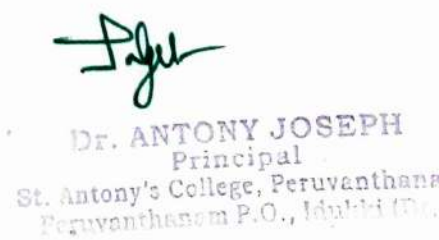 Dr. ANTONY JOSEPH
Principal
St. Antony's College, Peruvanthana
Peruvanthanam P.O., Idukki (Dt.